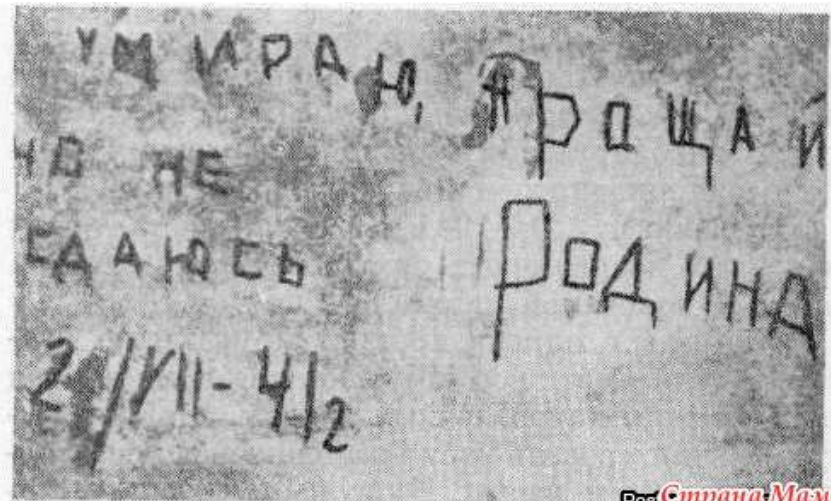 УМИРАЮ,
НО НЕ
СДАЮСЬ
ПРОЩАЙ
РОДИНА
/VII-41
Страна